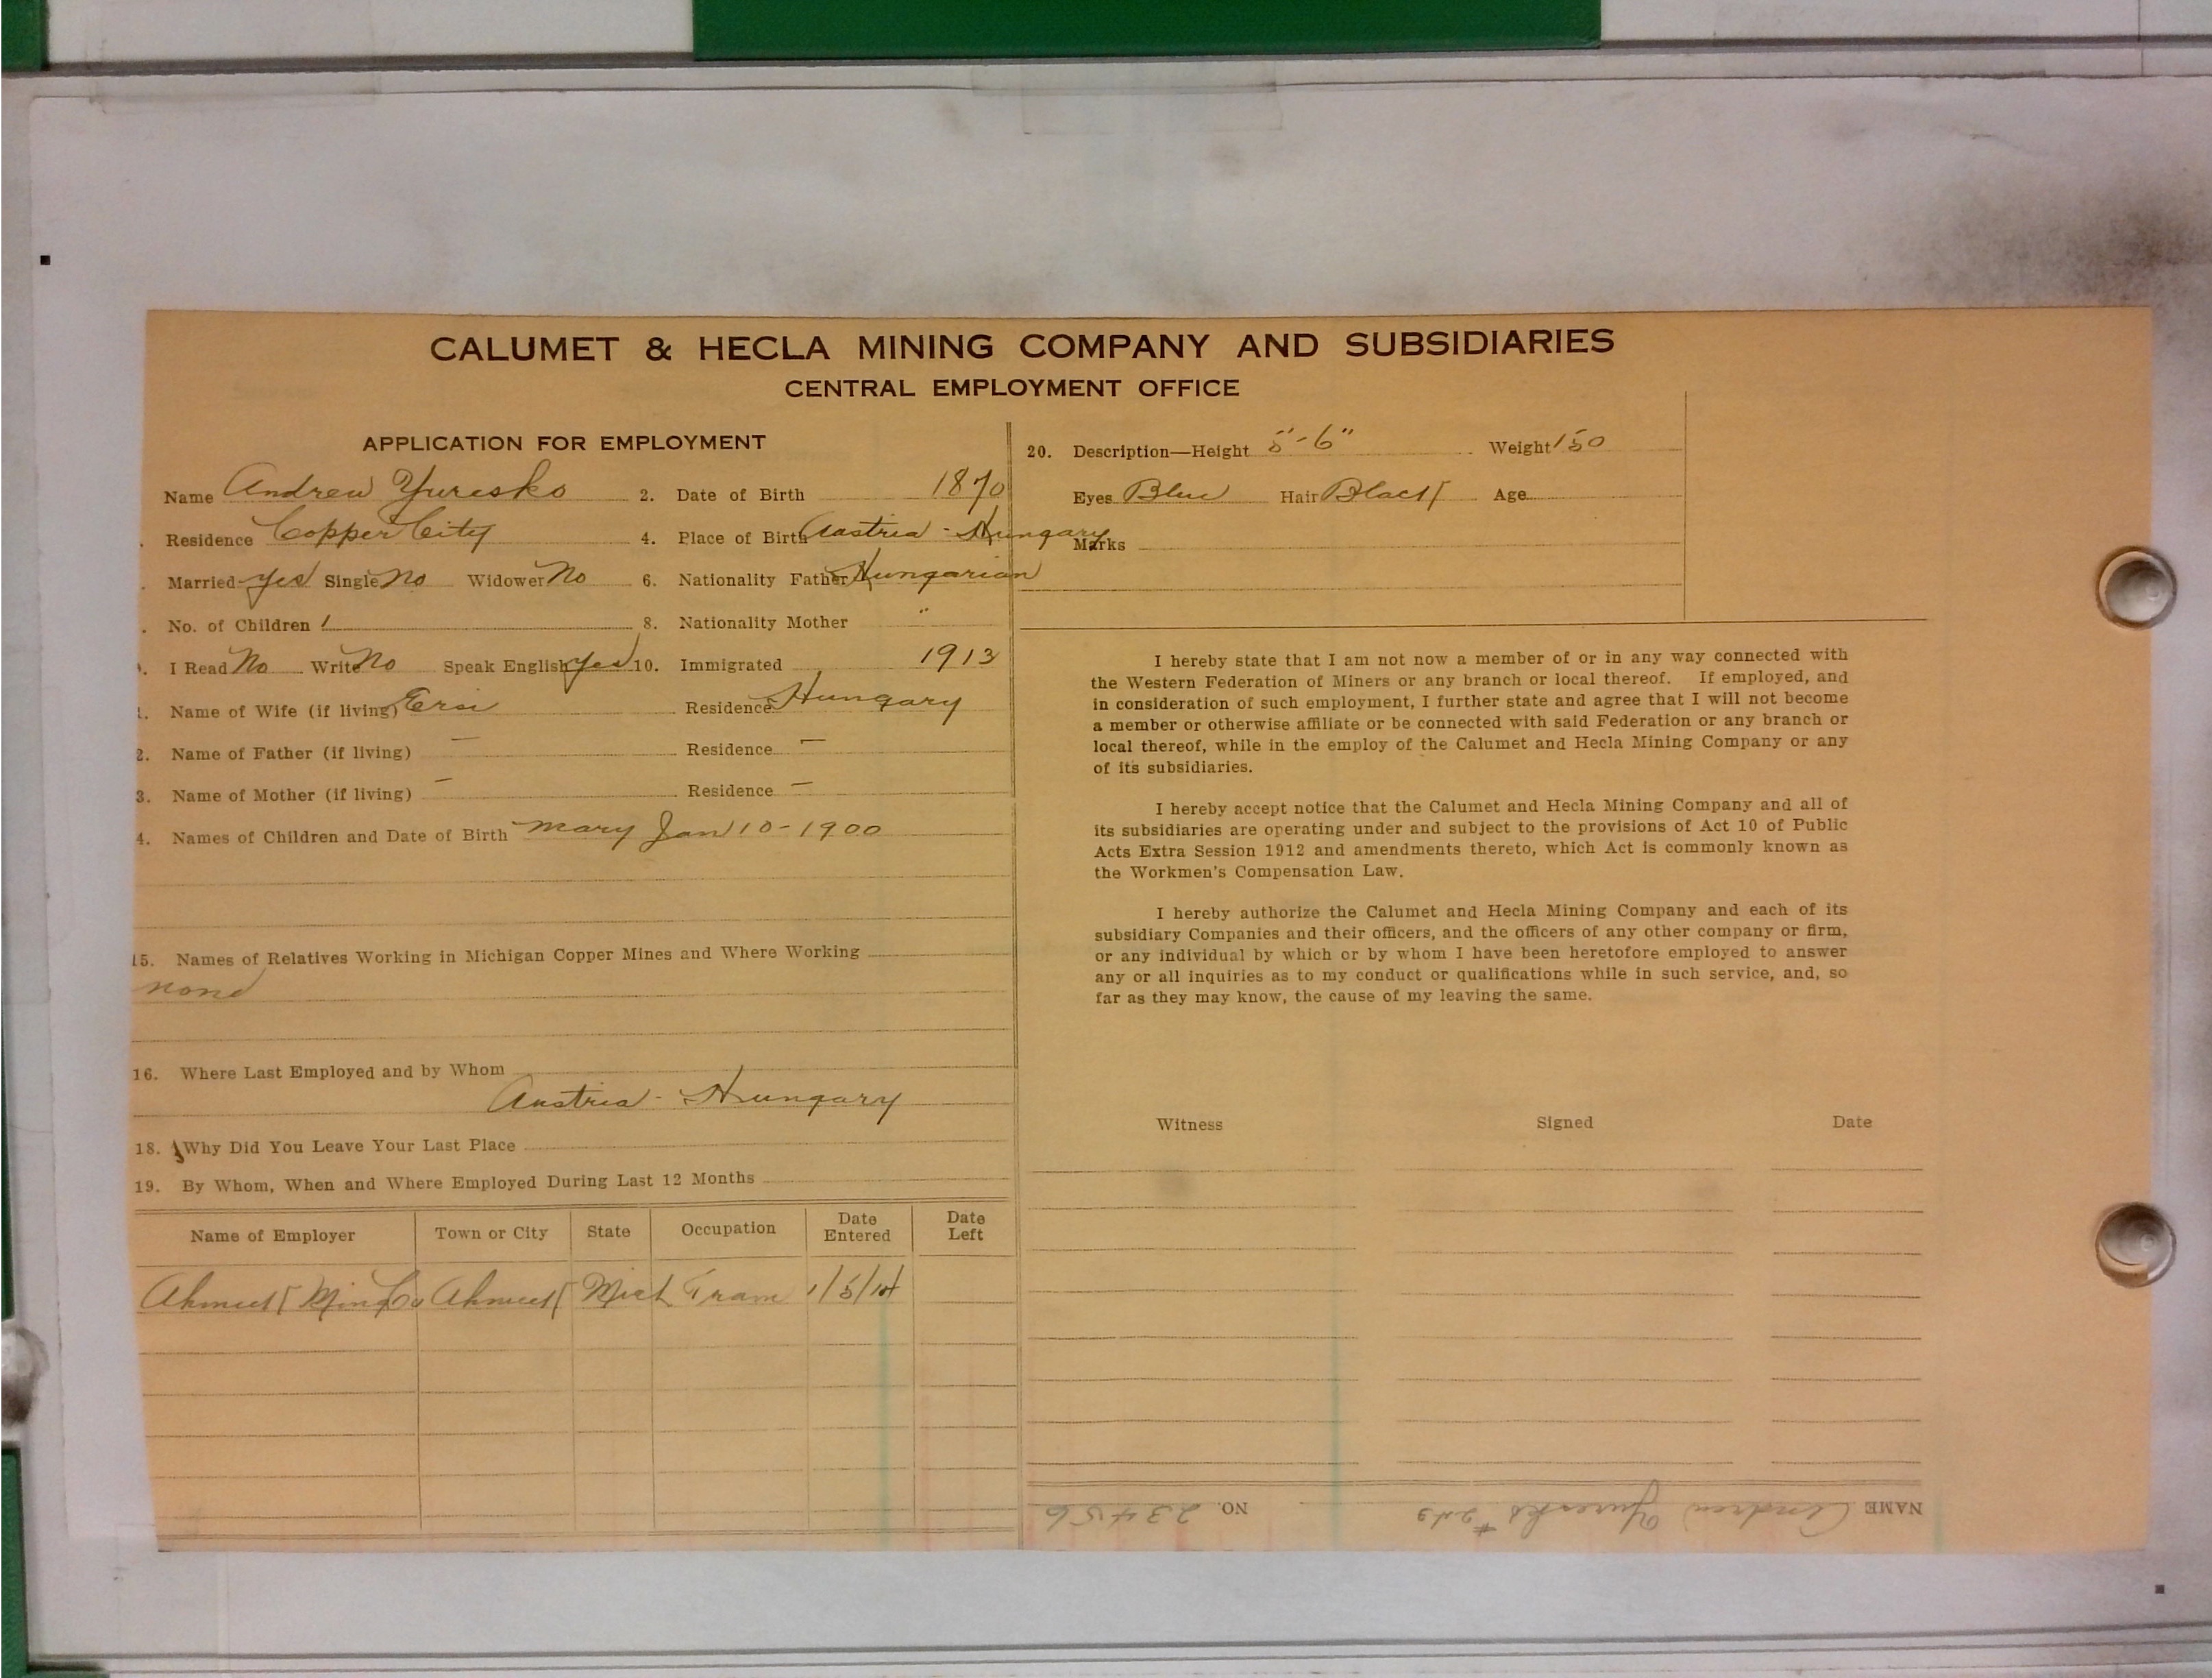 CALUMET & HECLA MINING COMPANY AND SUBSIDIARIES
CENTRAL EMPLOYMENT OFFICE
APPLICATION FOR EMPLOYMENT
Name Andrew Yuresko 2. Date of Birth 1870
. Residence Copper City 4. Place of Birth Austria - Hungary
. Married Yes Single No Widower No 6. Nationality Father Hungarian
. No. of Children 1 8. Nationality Mother "
. I Read No Write No Speak English Yes 10. Immigrated 1913
1. Name of Wife (if living) Ersi Residence Hungary
2. Name of Father (if living) — Residence —
3. Name of Mother (if living) — Residence —
4. Names of Children and Date of Birth Mary Jan 10-1900
15. Names of Relatives Working in Michigan Copper Mines and Where Working
none
16. Where Last Employed and by Whom
Austria - Hungary
18. Why Did You Leave Your Last Place
19. By Whom, When and Where Employed During Last 12 Months
Name of Employer Town or City State Occupation Date Entered Date Left
Ahmeek Ming Co Ahmeek Mich Tram 1/5/14
20. Description—Height 5'-6" Weight 150
Eyes Blue Hair Black Age
Marks
I hereby state that I am not now a member of or in any way connected with
the Western Federation of Miners or any branch or local thereof. If employed, and
in consideration of such employment, I further state and agree that I will not become
a member or otherwise affiliate or be connected with said Federation or any branch or
local thereof, while in the employ of the Calumet and Hecla Mining Company or any
of its subsidiaries.
I hereby accept notice that the Calumet and Hecla Mining Company and all of
its subsidiaries are operating under and subject to the provisions of Act 10 of Public
Acts Extra Session 1912 and amendments thereto, which Act is commonly known as
the Workmen's Compensation Law.
I hereby authorize the Calumet and Hecla Mining Company and each of its
subsidiary Companies and their officers, and the officers of any other company or firm,
or any individual by which or by whom I have been heretofore employed to answer
any or all inquiries as to my conduct or qualifications while in such service, and, so
far as they may know, the cause of my leaving the same.
Witness Signed Date
NAME Andrew Yuresko NO. 23456